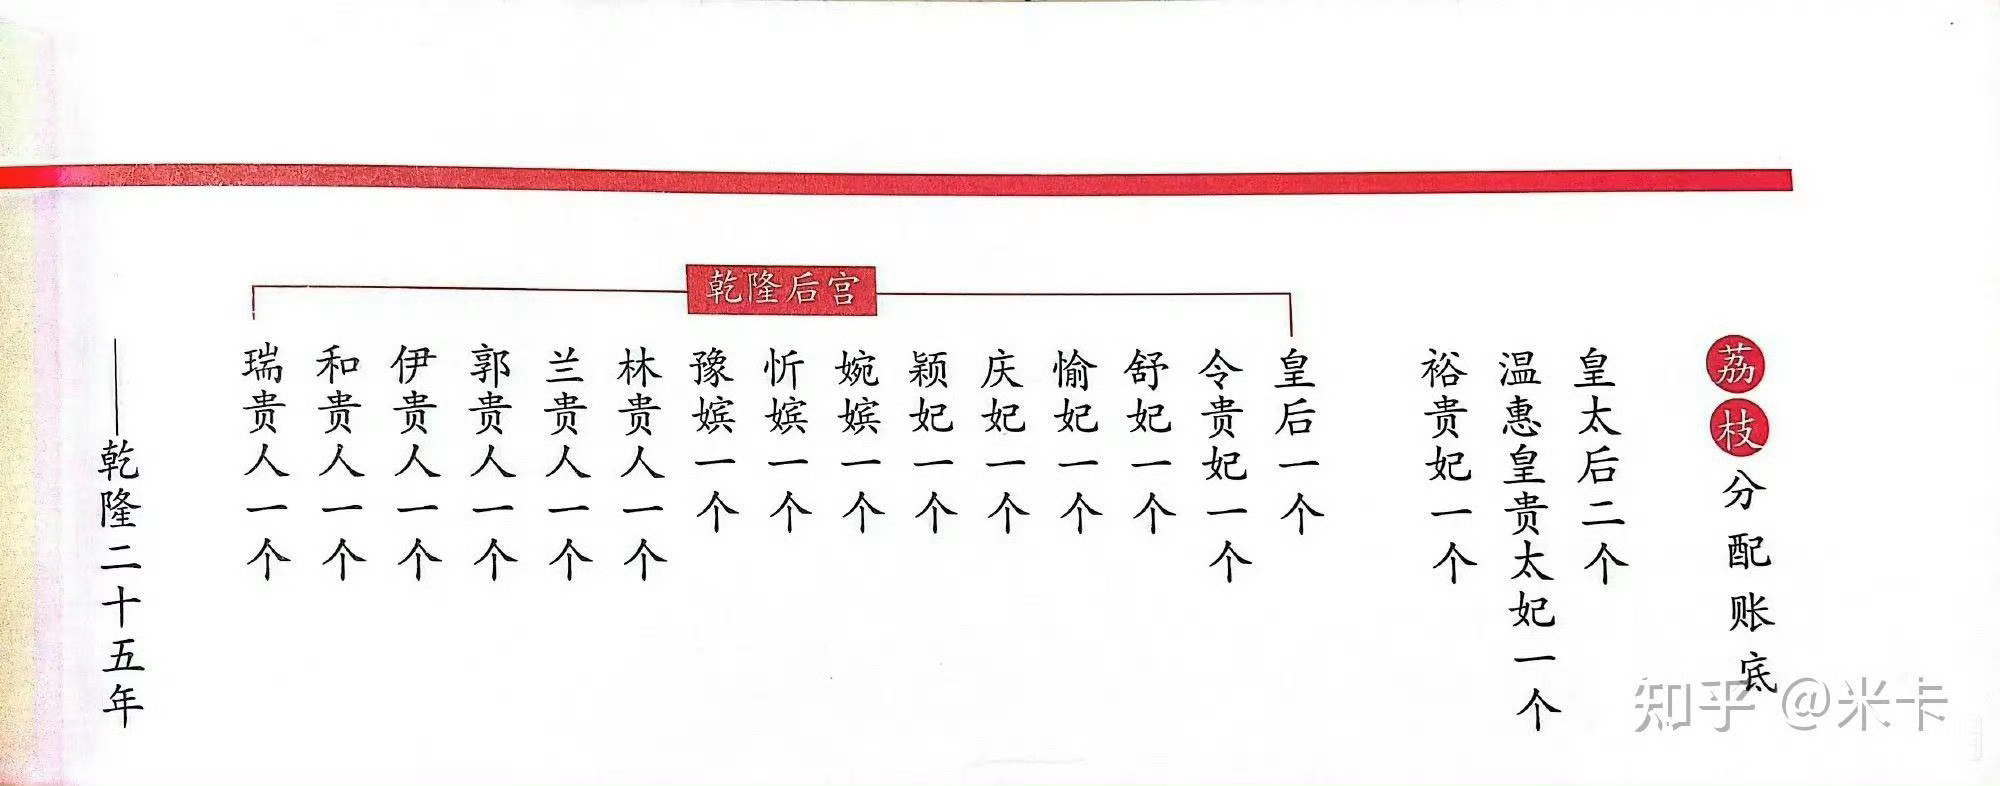 荔枝分配账底
皇太后二个
温惠皇贵太妃一个
裕贵妃一个
乾隆后宫
皇后一个
令贵妃一个
舒妃一个
愉妃一个
庆妃一个
颖妃一个
婉嫔一个
忻嫔一个
豫嫔一个
林贵人一个
兰贵人一个
郭贵人一个
伊贵人一个
和贵人一个
瑞贵人一个
——乾隆二十五年
知乎 @米卡